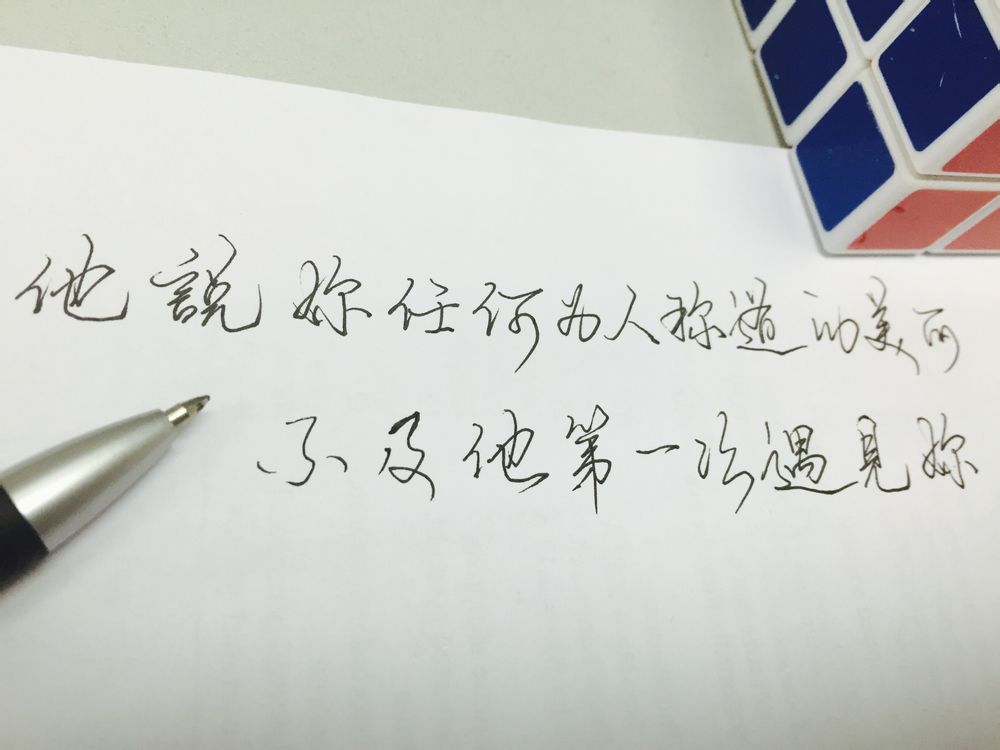 他說妳任何为人称道的美丽
不及他第一次遇見妳